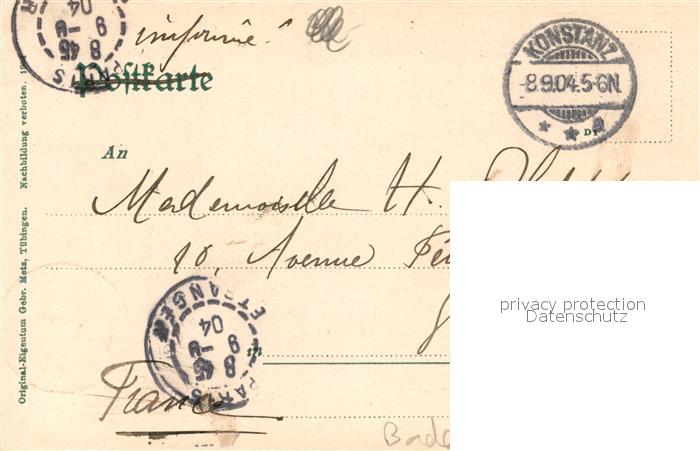 imprimé
Postkarte
KONSTANZ
8.9.04.5-6N.
An
Mademoiselle H.
10, Avenue
in
France
PARIS
ETRANGER
8 45
9
04
PARIS
8 45
9
04
Original-Eigentum Gebr. Metz, Tübingen. Nachbildung verboten.
privacy protection
Datenschutz